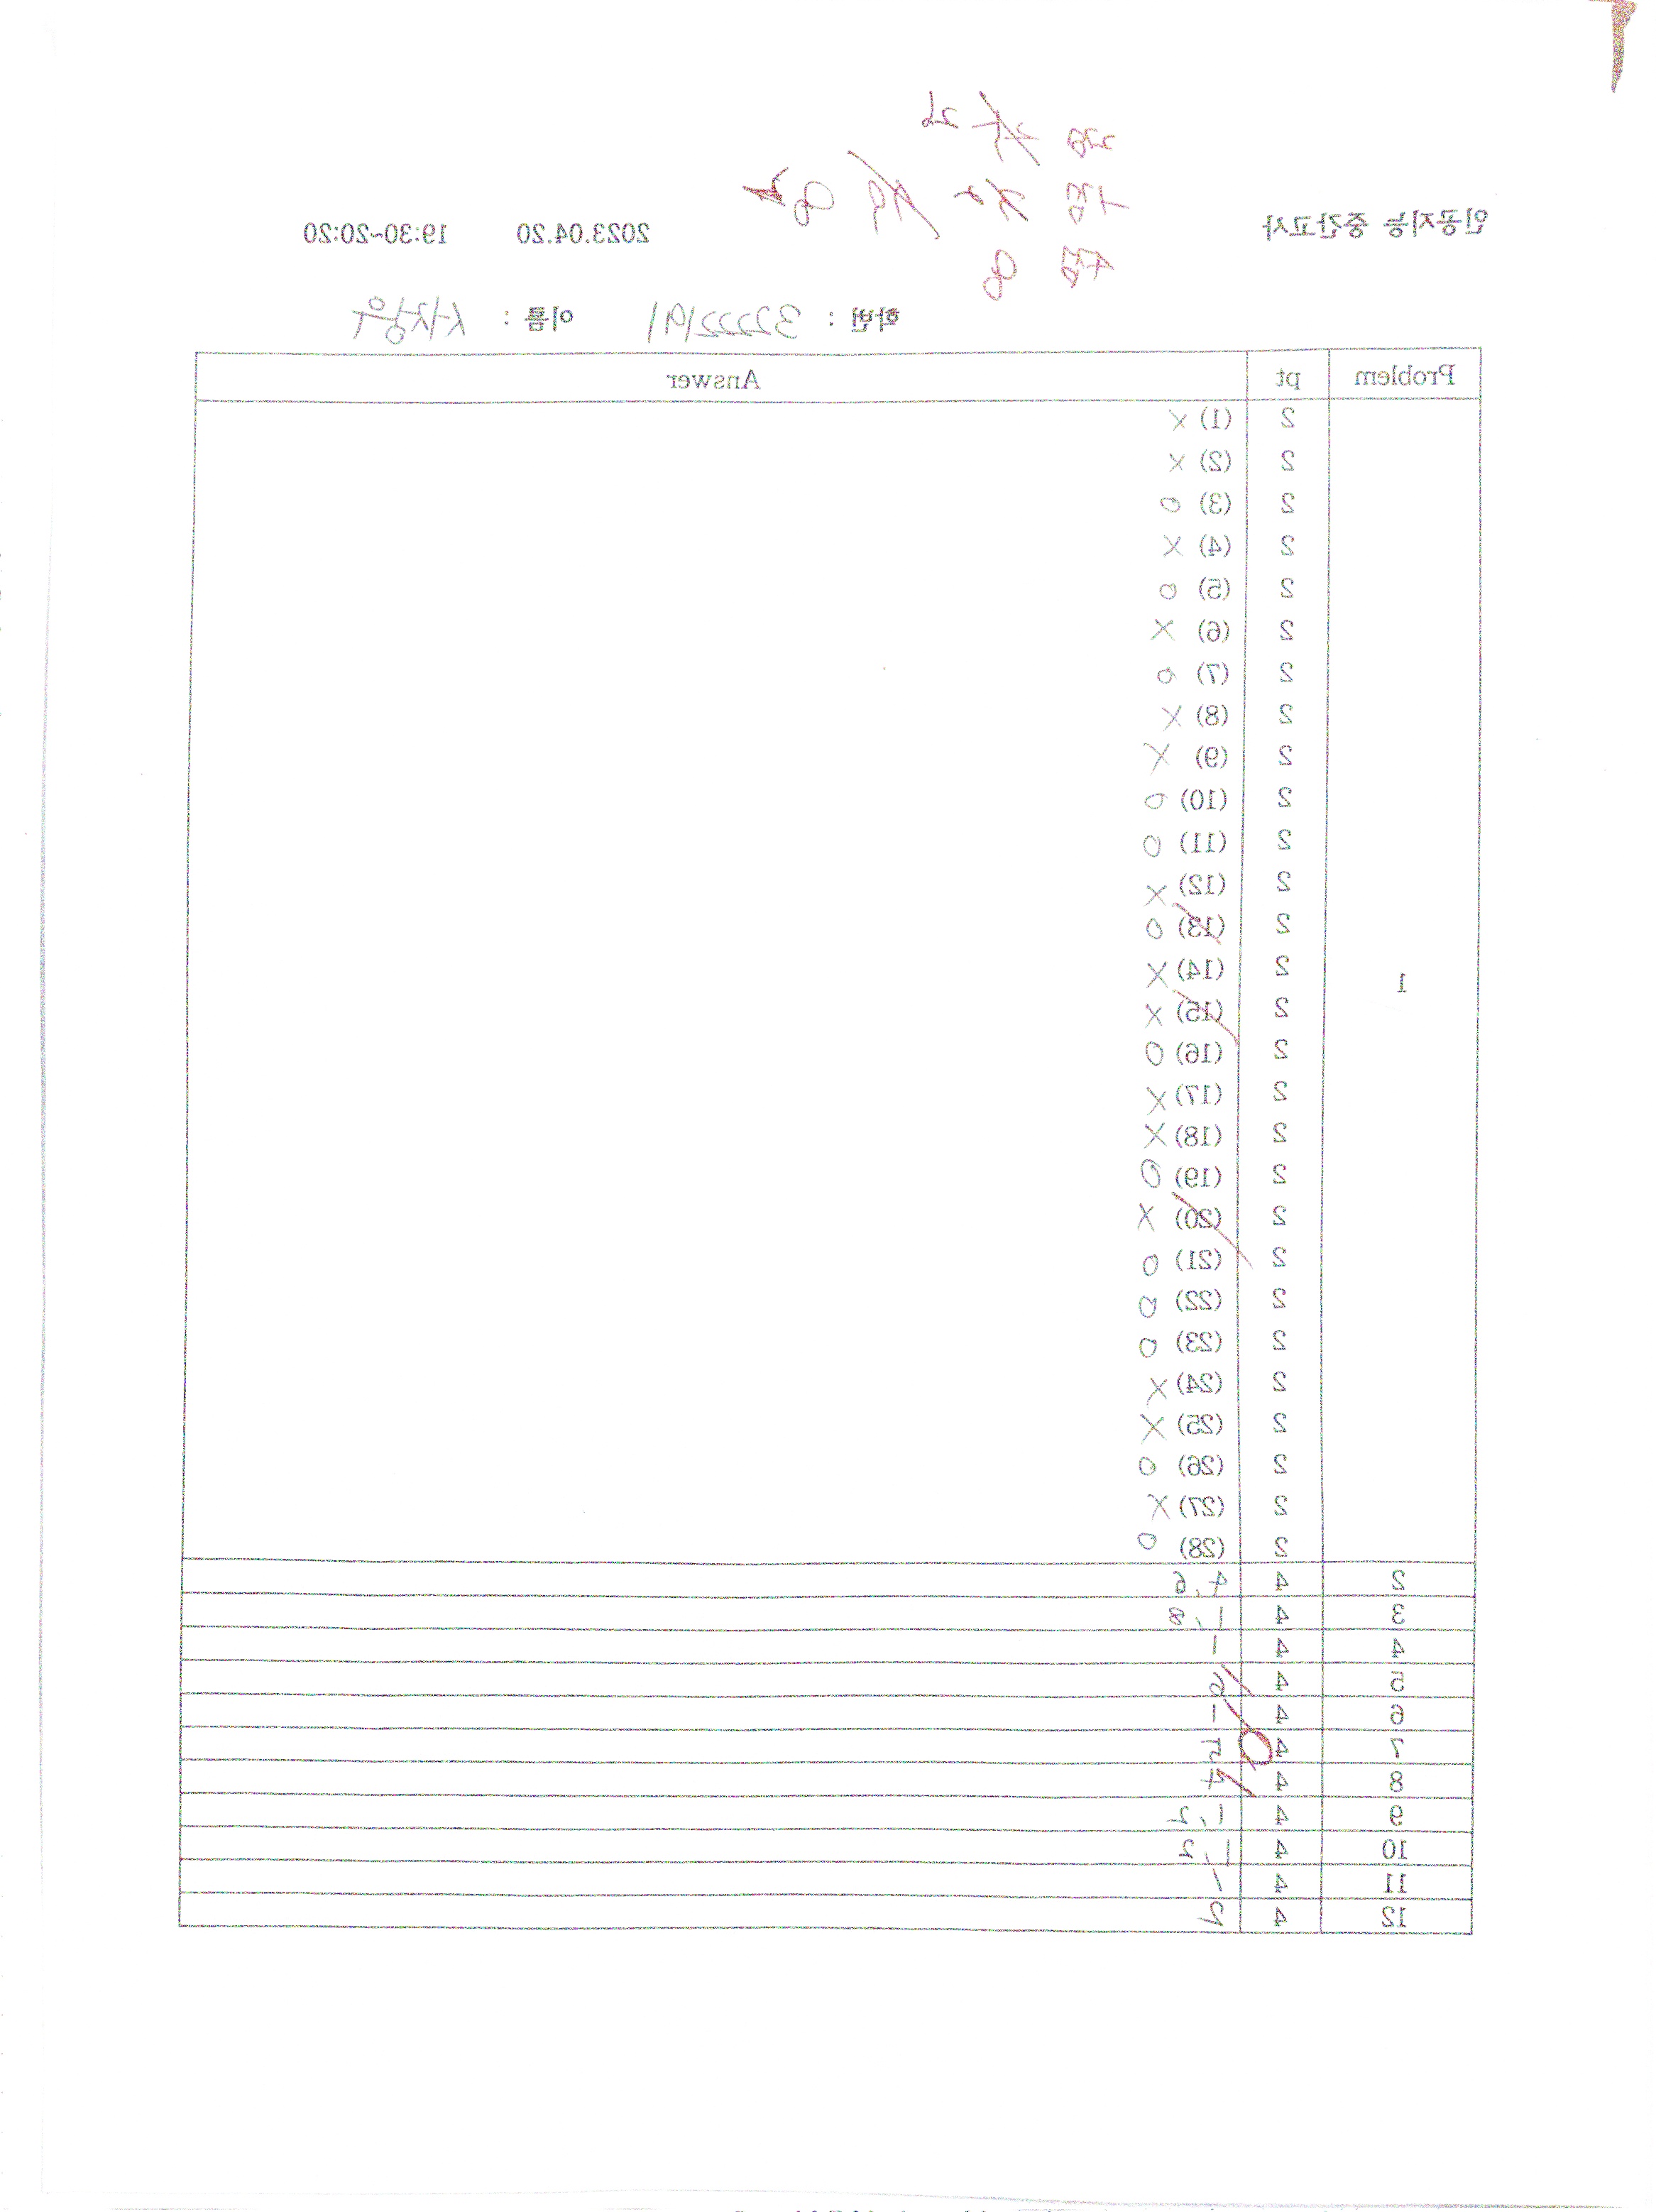 인공지능 중간고사 2023.04.20 19:30~20:20
학번 : 32222191 이름 :
Problem pt Answer
1
2 (1) X
2 (2) X
2 (3) O
2 (4) X
2 (5) O
2 (6) X
2 (7) O
2 (8) X
2 (9) X
2 (10) O
2 (11) O
2 (12) X
2 (13) O
2 (14) X
2 (15) X
2 (16) O
2 (17) X
2 (18) X
2 (19) O
2 (20) X
2 (21) O
2 (22) O
2 (23) O
2 (24) X
2 (25) X
2 (26) O
2 (27) X
2 (28) O
2 4 4, 6
3 4 1, 8
4 4 1
5 4
6 4 1
7 4 5
8 4 4
9 4 1, 2
10 4 1, 2
11 4 1
12 4 2